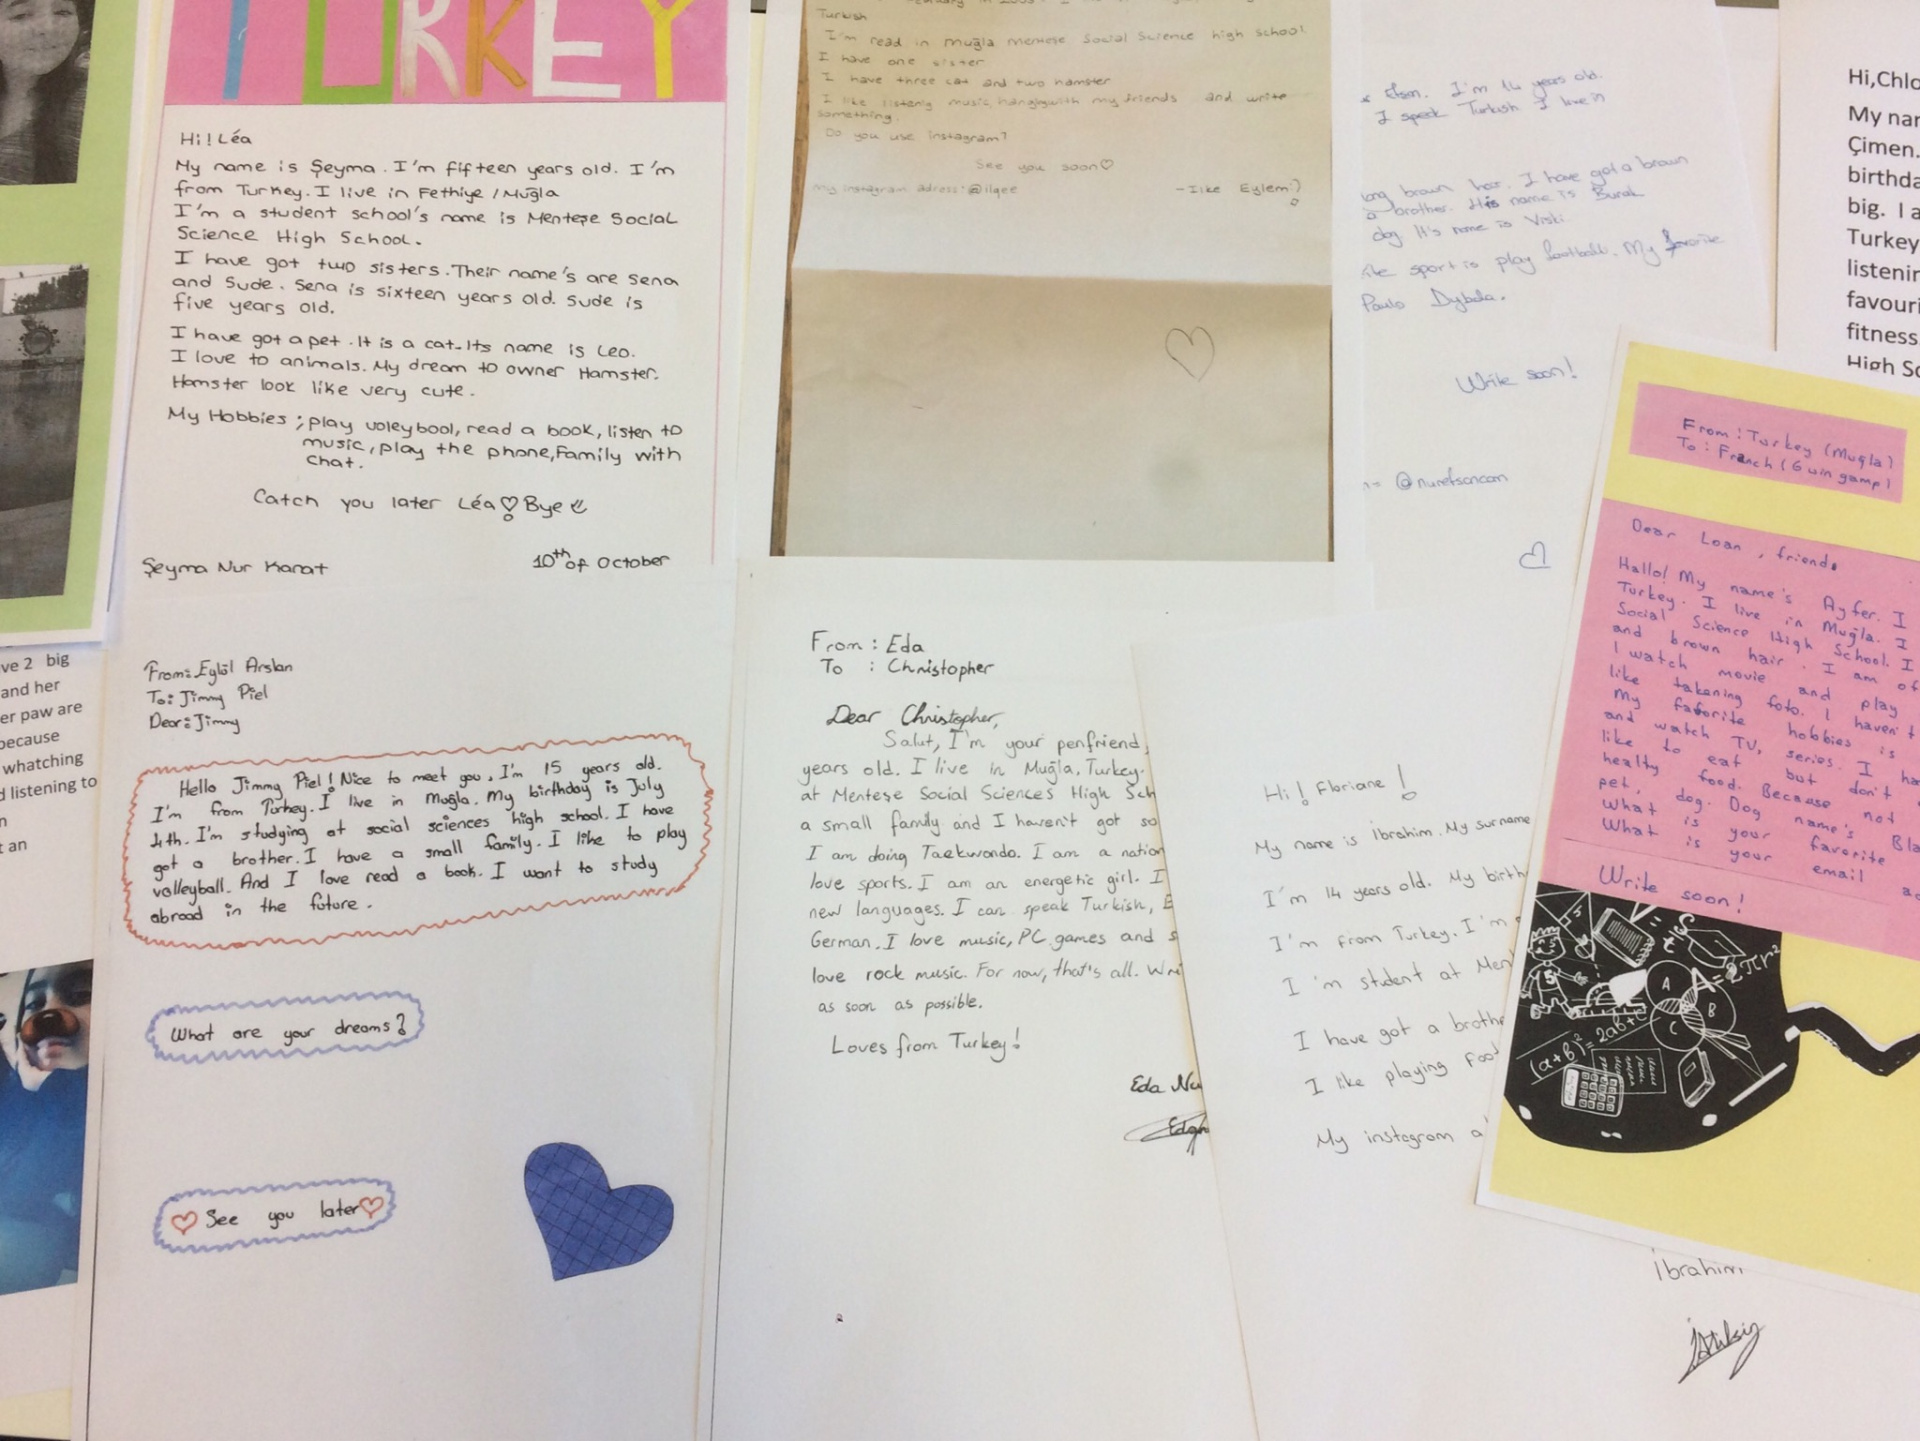 TURKEY
Hi! Léa
My name is Şeyma. I'm fifteen years old. I'm
from Turkey. I live in Fethiye / Muğla
I'm a student school's name is Menteşe Social
Science High School.
I have got two sisters. Their name's are Sena
and Sude. Sena is sixteen years old. Sude is
five years old.
I have got a pet. It is a cat. Its name is Leo.
I love to animals. My dream to owner Hamster.
Hamster look like very cute.
My Hobbies ; play voleybool, read a book, listen to
music, play the phone, Family with
chat.
Catch you later Léa Bye
Şeyma Nur Kanat
10th of October
Turkish
I'm read in Muğla Menteşe Social Science high school.
I have one sister
I have three cat and two hamster
I like listenig music, with my friends and write
something.
Do you use instagram?
See you soon
my instagram adress: @ilqee
-Ilke Eylem:)
I'm 14 years old.
I speak Turkish I live in
brown hair. I have got a brown
a brother. His name is Burak
dog. It's name is Viski.
sport is play football. My favorite
Paulo Dybala.
Write soon!
Hi,Chlo
My nar
Çimen.
birthda
big. I a
Turkey
listenin
favouri
fitness.
High Sc
From : Turkey (Muğla)
To : Franch (Guingamp)
Dear Loan, friend.
Hallo! My name's Ayfer. I
Turkey. I live in Muğla. I
Social Science High School. I
and brown hair. I am of
I watch movie and play
like takening foto. I haven't
My faforite hobbies is
and watch TV, series. I ha
like to eat but don't
healthy food. Because not
pet, dog. Dog name's Bla
What is your favorite
What is your email ad
Write soon!
A=2πr²
A
B
C
(a+b)²=2ab+c
5
ve 2 big
and her
er paw are
because
whatching
d listening to
n
t an
From: Eylül Arslan
To: Jimmy Piel
Dear: Jimmy
Hello Jimmy Piel! Nice to meet you, I'm 15 years old.
I'm from Turkey. I live in Muğla. My birthday is July
4th. I'm studying at social sciences high school. I have
got a brother. I have a small family. I like to play
volleyball. And I love read a book. I want to study
abroad in the future.
What are your dreams?
See you later
From : Eda
To : Christopher
Dear Christopher,
Salut, I'm your penfriend,
years old. I live in Muğla, Turkey.
at Menteşe Social Sciences High Sch
a small family and I haven't got so
I am doing Taekwondo. I am a nation
love sports. I am an energetic girl. I
new languages. I can speak Turkish, E
German. I love music, PC games and s
love rock music. For now, that's all. Wri
as soon as possible.
Loves from Turkey!
Eda Nu
Hi! Floriane!
My name is İbrahim. My surname
I'm 14 years old. My birth
I'm from Turkey. I'm
I'm student at Men
I have got a brothe
I like playing Foo
My instagram a
İbrahim